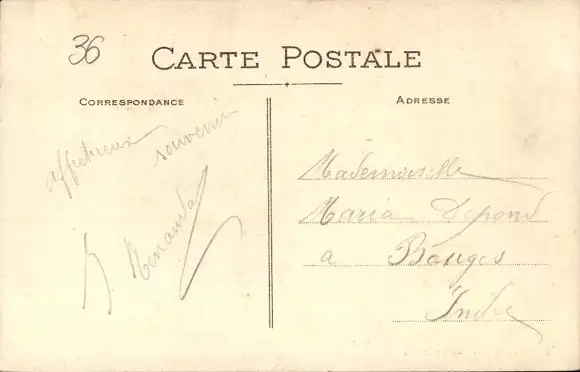 36
CARTE POSTALE
CORRESPONDANCE
affectueux souvenir
Renaud
ADRESSE
Mademoiselle
Maria
a Bouges
Indre